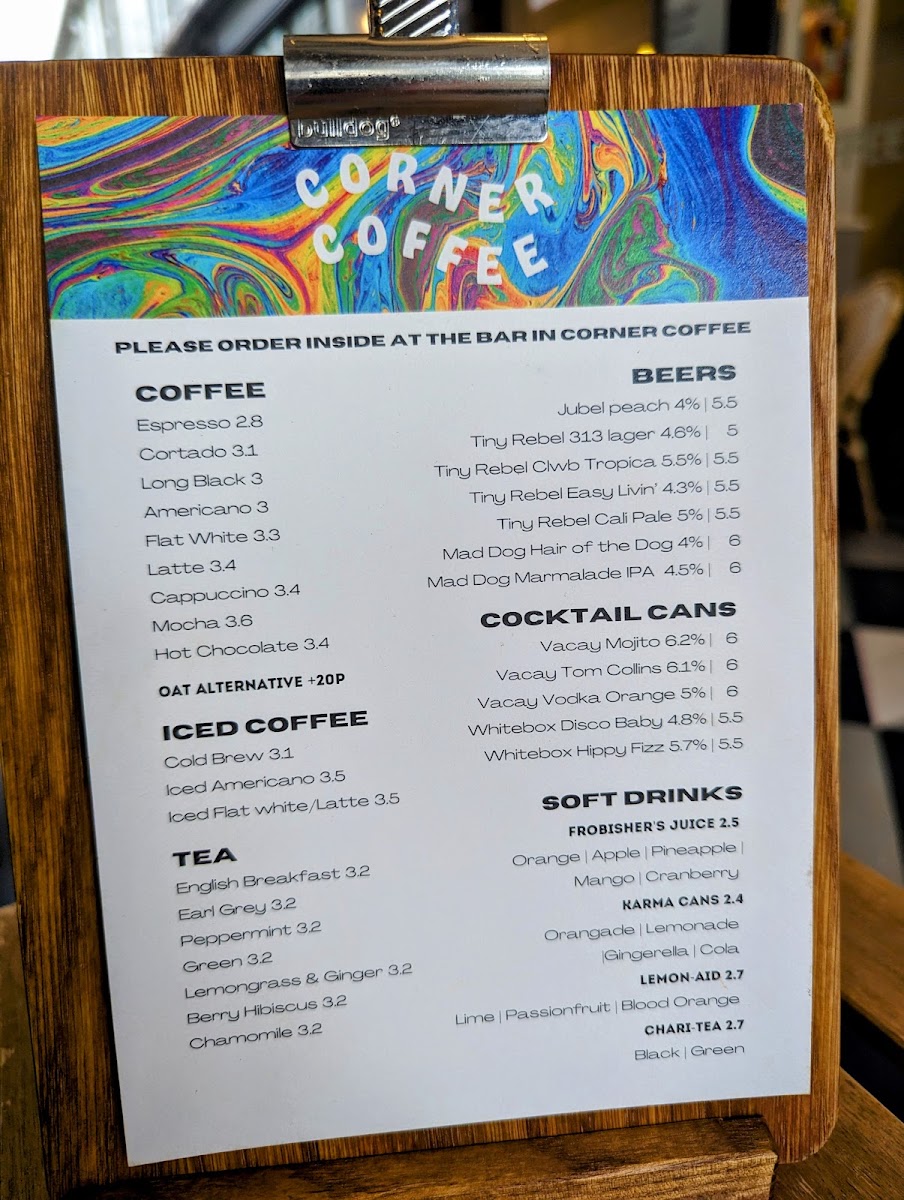 bulldog®
CORNER
COFFEE
PLEASE ORDER INSIDE AT THE BAR IN CORNER COFFEE
COFFEE
Espresso 2.8
Cortado 3.1
Long Black 3
Americano 3
Flat White 3.3
Latte 3.4
Cappuccino 3.4
Mocha 3.6
Hot Chocolate 3.4
OAT ALTERNATIVE +20P
ICED COFFEE
Cold Brew 3.1
Iced Americano 3.5
Iced Flat white/Latte 3.5
TEA
English Breakfast 3.2
Earl Grey 3.2
Peppermint 3.2
Green 3.2
Lemongrass & Ginger 3.2
Berry Hibiscus 3.2
Chamomile 3.2
BEERS
Jubel peach 4% | 5.5
Tiny Rebel 313 lager 4.6% | 5
Tiny Rebel Clwb Tropica 5.5% | 5.5
Tiny Rebel Easy Livin' 4.3% | 5.5
Tiny Rebel Cali Pale 5% | 5.5
Mad Dog Hair of the Dog 4% | 6
Mad Dog Marmalade IPA 4.5% | 6
COCKTAIL CANS
Vacay Mojito 6.2% | 6
Vacay Tom Collins 6.1% | 6
Vacay Vodka Orange 5% | 6
Whitebox Disco Baby 4.8% | 5.5
Whitebox Hippy Fizz 5.7% | 5.5
SOFT DRINKS
FROBISHER'S JUICE 2.5
Orange | Apple | Pineapple |
Mango | Cranberry
KARMA CANS 2.4
Orangade | Lemonade
|Gingerella | Cola
LEMON-AID 2.7
Lime | Passionfruit | Blood Orange
CHARI-TEA 2.7
Black | Green